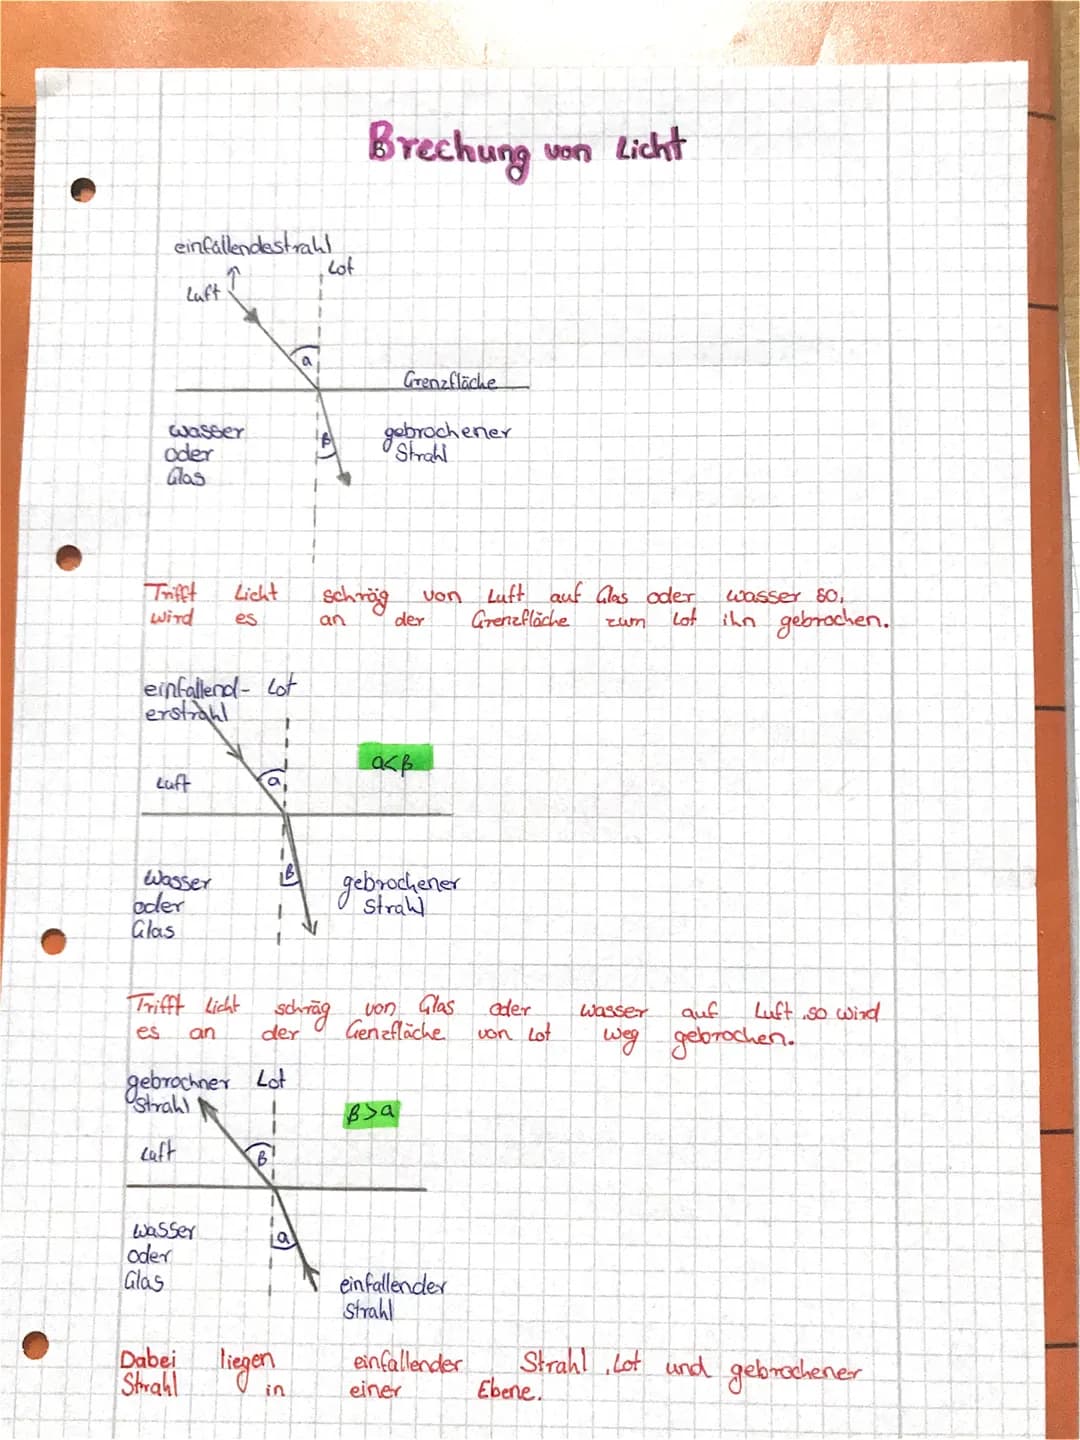 Brechung von Licht
einfallendestrahl
Lot
Luft
a
Grenzfläche
wasser
oder
Glas
β
gebrochener
Strahl
Trifft Licht schräg von Luft auf Glas oder wasser so,
wird es an der Grenzfläche zum Lot ihn gebrochen.
einfallend- Lot
erstrahl
a<β
Luft
a
Wasser
oder
Glas
β
gebrochener
Strahl
Trifft Licht schräg von Glas oder wasser auf Luft so wird
es an der Genzfläche von Lot weg gebrochen.
gebrochner Lot
Strahl
β>a
Luft
β
wasser
oder
Glas
a
einfallender
Strahl
Dabei liegen einfallender Strahl, Lot und gebrochener
Strahl in einer Ebene.